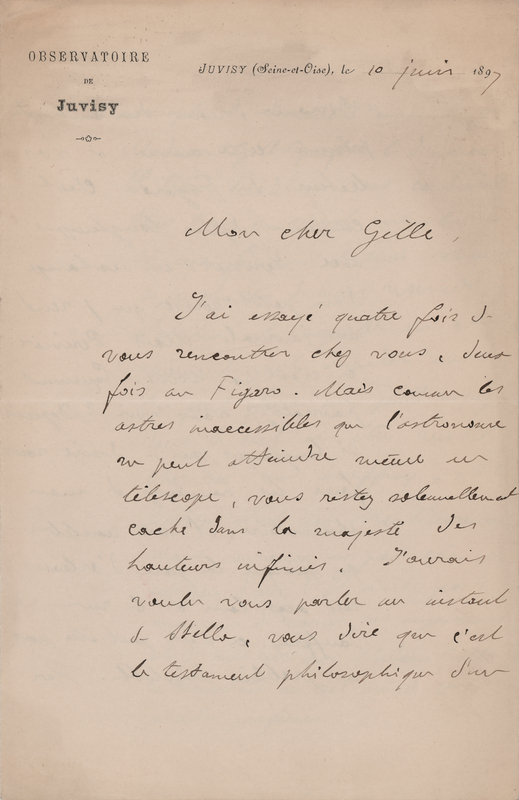 OBSERVATOIRE
DE
Juvisy
JUVISY (Seine-et-Oise), le 10 juin 1897
Mon cher Gille,
J'ai essayé quatre fois de
vous rencontrer chez vous, deux
fois au Figaro. Mais comme les
astres inaccessibles que l'astronome
ne peut atteindre même au
télescope, vous restez solennellement
caché dans la majesté des
hauteurs infinies. J'aurais
voulu vous parler un instant
de Stella, vous dire que c'est
le testament philosophique d'un